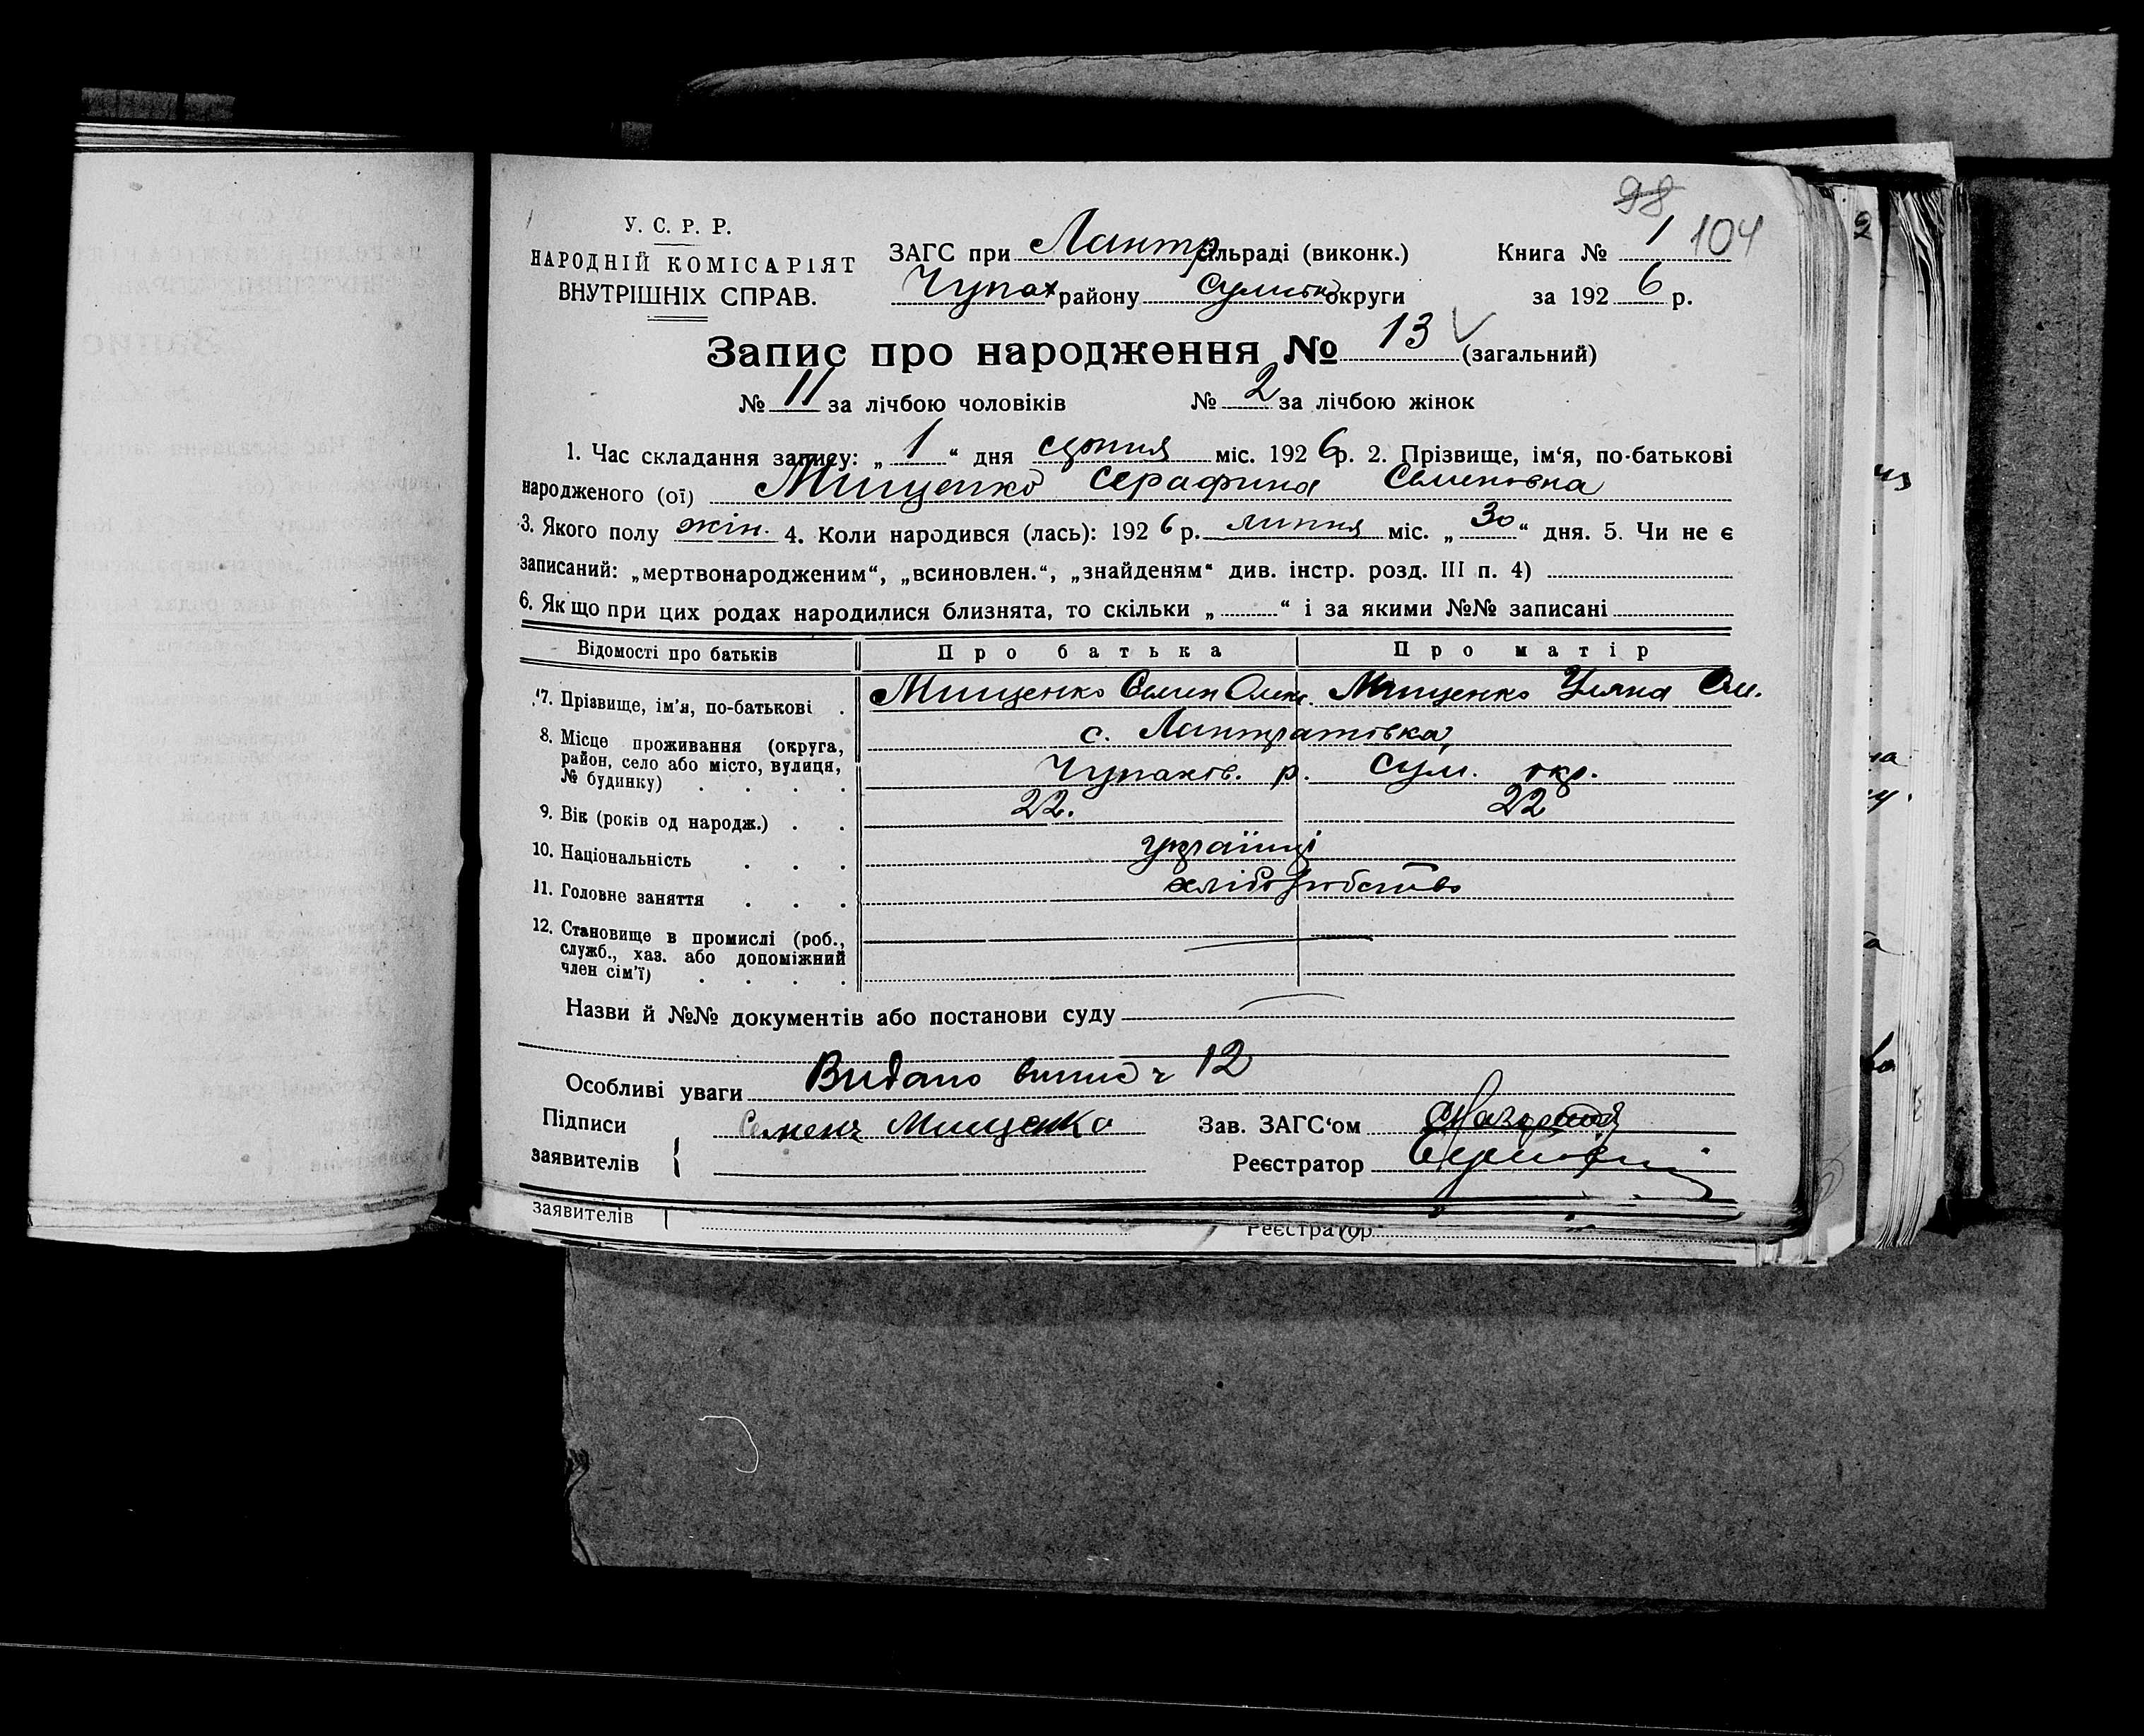 98
У. С. Р. Р.
НАРОДНІЙ КОМІСАРІЯТ
ВНУТРІШНІХ СПРАВ.
ЗАГС при Лантр сільраді (виконк.)
Чупах району Сумськ округи
Книга № 1 104
за 1926 р.
Запис про народження № 13 (загальний)
№ 11 за лічбою чоловіків № 2 за лічбою жінок
1. Час складання запису: „ 1 “ дня серпня міс. 1926 р. 2. Прізвище, ім‘я, по-батькові
народженого (ої) Мищенко Серафина Семеновна
3. Якого полу жін. 4. Коли народився (лась): 1926 р. липня міс. „ 30 “ дня. 5. Чи не є
записаний: „мертвонародженим“, „всиновлен.“, „знайденям“ див. інстр. розд. III п. 4)
6. Якщо при цих родах народилися близнята, то скільки „ “ і за якими №№ записані
Відомості про батьків Про батька Про матір
7. Прізвище, ім'я, по-батькові . Мищенко Семен Олек. Мищенко Уляна
8. Місце проживання (округа, район, село або місто, вулиця, № будинку) . . . . с. Лантратовка,
Чупахів. р. Сум. окр.
9. Вік (років од народж.) . . 22. 22
10. Національність . . . українці
11. Головне заняття . . . хліборобство
12. Становище в промислі (роб.,
служб., хаз. або допоміжний
член сім'ї) . . . .
Назви й №№ документів або постанови суду
Особливі уваги Видано випис ч 12
Підписи
заявителів { Семенъ Мищенко
Зав. ЗАГС‘ом
Реєстратор
заявителів
Реєстратор